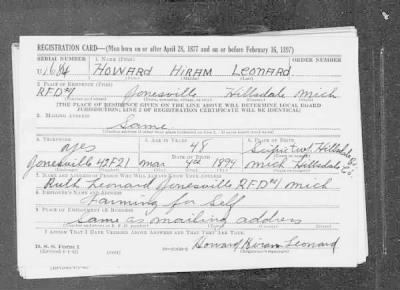 REGISTRATION CARD—(Men born on or after April 28, 1877 and on or before February 16, 1897)
SERIAL NUMBER 1. NAME (Print) ORDER NUMBER
U 1684 HOWARD HIRAM LEONARD
(First) (Middle) (Last)
2. PLACE OF RESIDENCE (Print)
RFD#1 Jonesville Hillsdale Mich
(Number and street) (Town, township, village, or city) (County) (State)
[THE PLACE OF RESIDENCE GIVEN ON THE LINE ABOVE WILL DETERMINE LOCAL BOARD
JURISDICTION; LINE 2 OF REGISTRATION CERTIFICATE WILL BE IDENTICAL]
3. MAILING ADDRESS
Same
4. TELEPHONE 5. AGE IN YEARS 6. PLACE OF BIRTH
yes 48 Hillsdale
DATE OF BIRTH
Jonesville 42F21 mar 4th 1894 mich Hillsdale Co.
7. NAME AND ADDRESS OF PERSON WHO WILL ALWAYS KNOW YOUR ADDRESS
Ruth Leonard Jonesville RFD#1 Mich
8. EMPLOYER'S NAME AND ADDRESS
Farming for Self
9. PLACE OF EMPLOYMENT OR BUSINESS
Same as mailing address
I AFFIRM THAT I HAVE VERIFIED ABOVE ANSWERS AND THAT THEY ARE TRUE.
D. S. S. Form 1 Howard Hiram Leonard